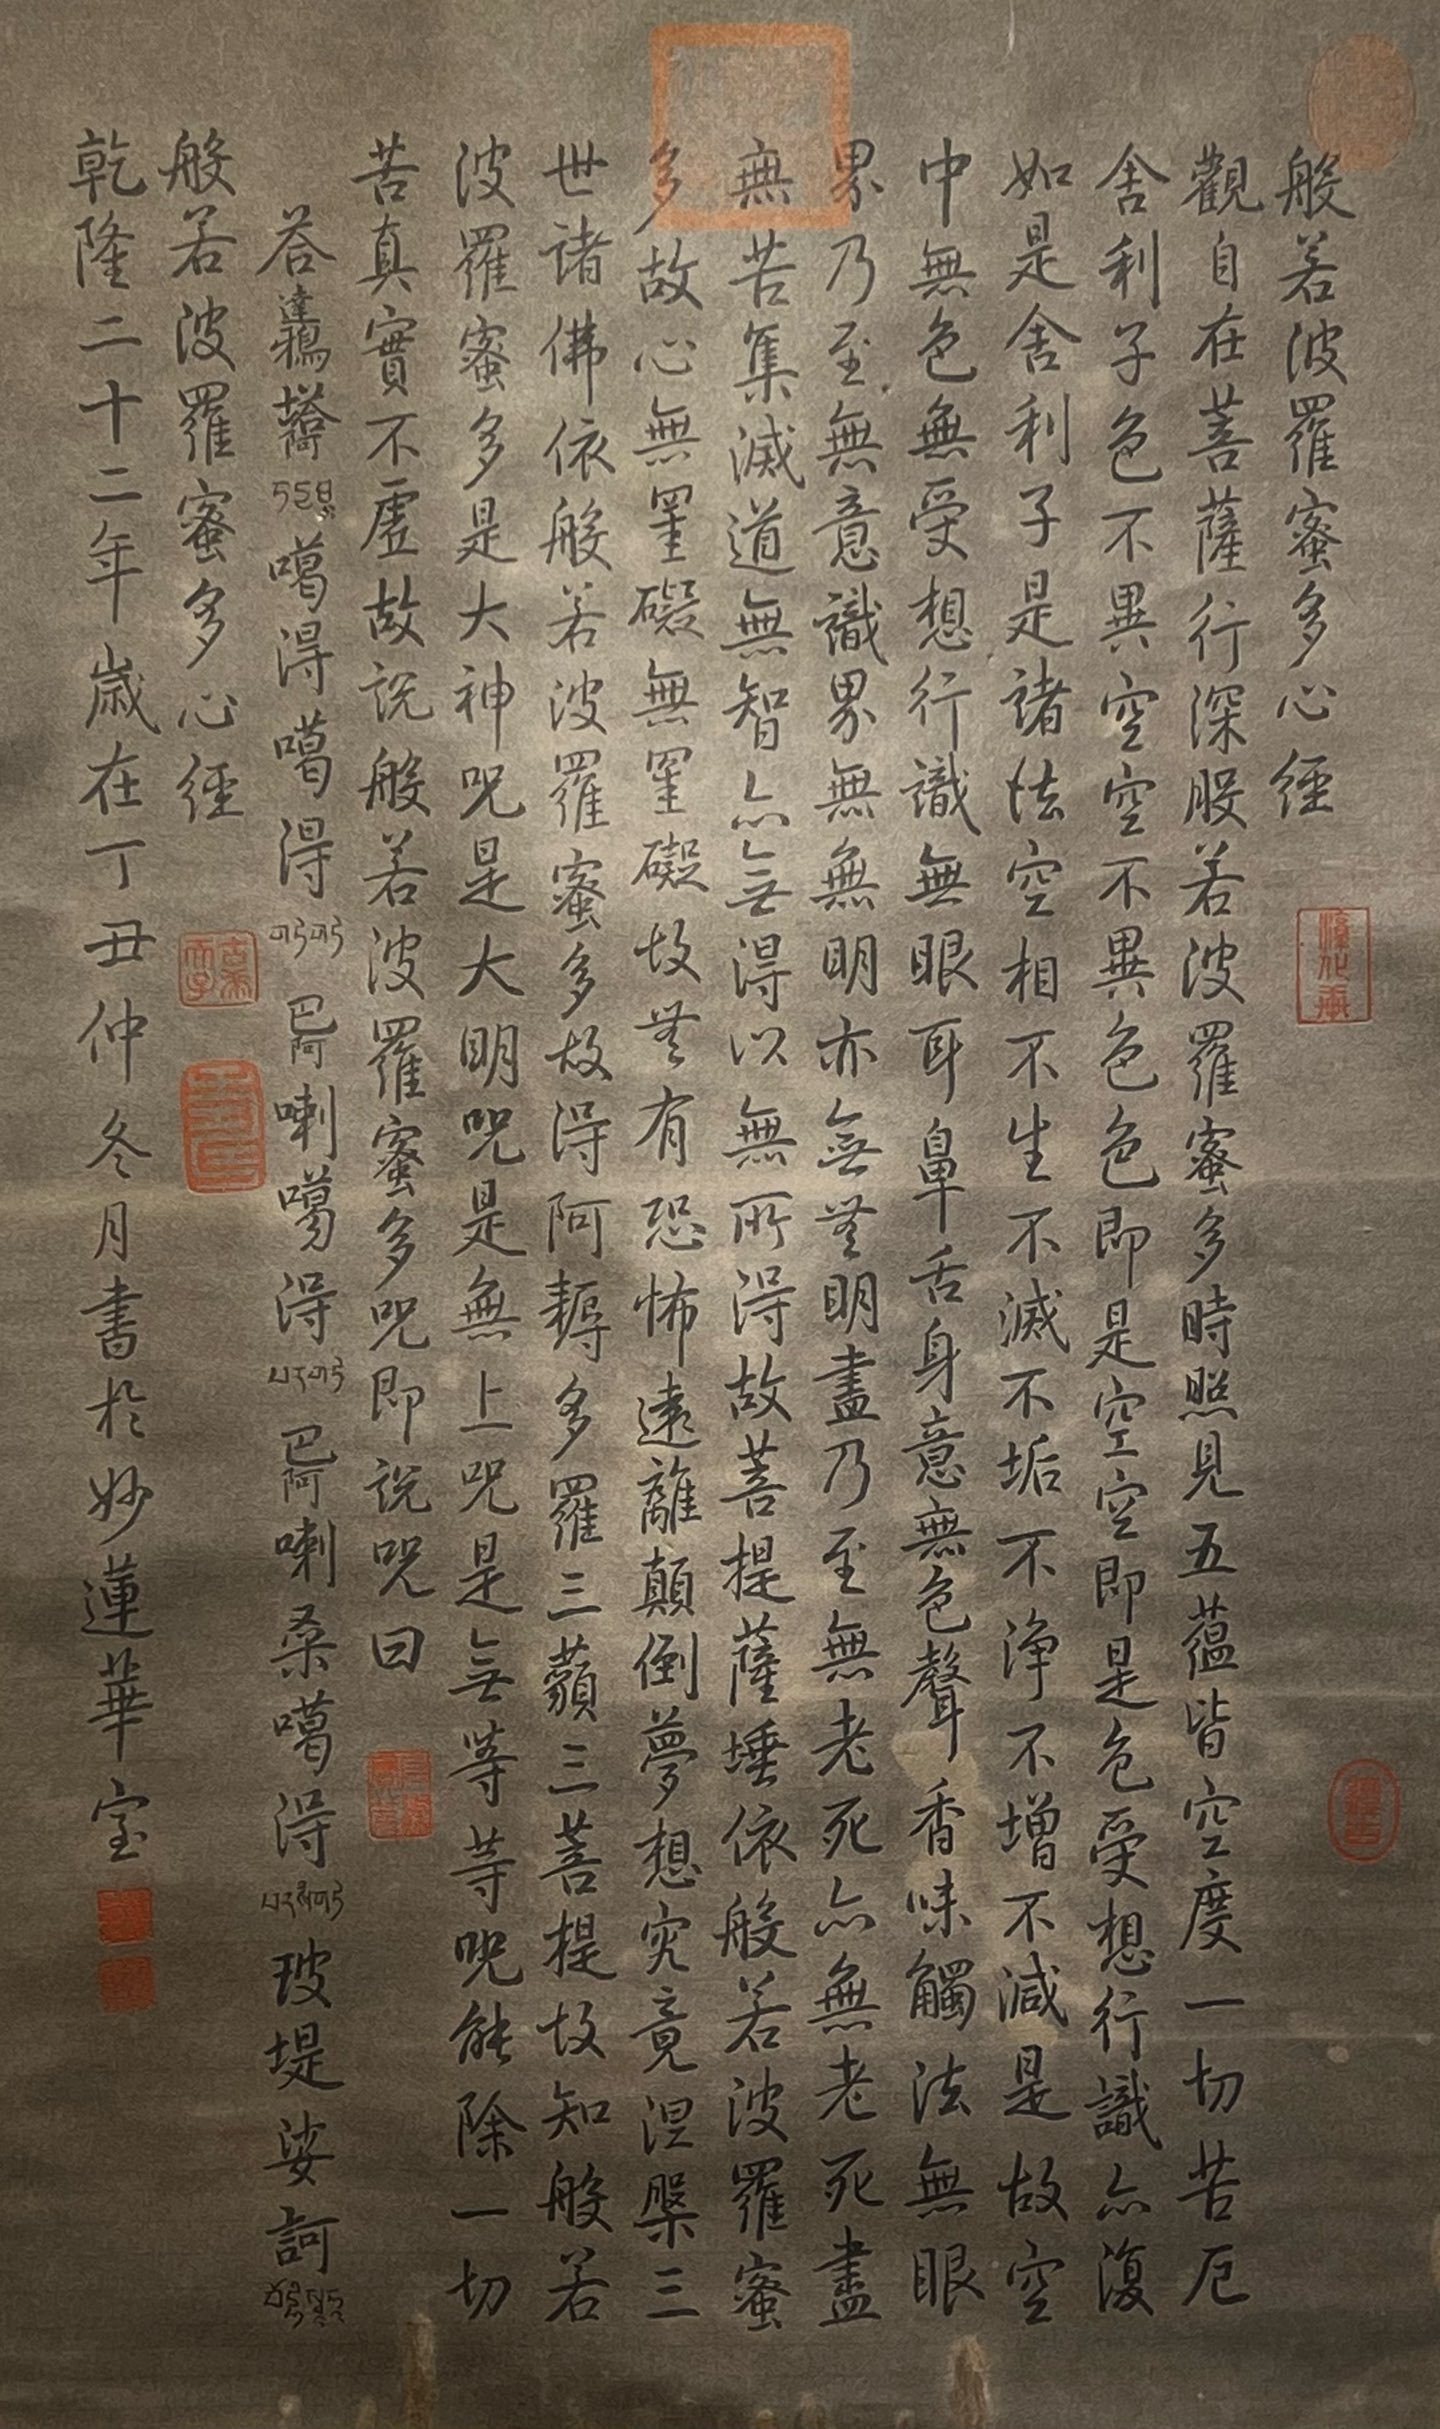 般若波羅蜜多心經
觀自在菩薩行深般若波羅蜜多時照見五蘊皆空度一切苦厄
舍利子色不異空空不異色色即是空空即是色受想行識亦復
如是舍利子是諸法空相不生不滅不垢不淨不增不減是故空
中無色無受想行識無眼耳鼻舌身意無色聲香味觸法無眼
界乃至無意識界無無明亦無無明盡乃至無老死亦無老死盡
無苦集滅道無智亦無得以無所得故菩提薩埵依般若波羅蜜
多故心無罣礙無罣礙故無有恐怖遠離顛倒夢想究竟涅槃三
世諸佛依般若波羅蜜多故得阿耨多羅三藐三菩提故知般若
波羅蜜多是大神咒是大明咒是無上咒是無等等咒能除一切
苦真實不虛故說般若波羅蜜多咒即說咒曰
荅達鴉塔阿噶得噶得巴阿喇噶得巴阿喇桑噶得玻堤娑訶
般若波羅蜜多心經
乾隆二十二年歲在丁丑仲冬月書於妙蓮華室
淳化軒
古希天子